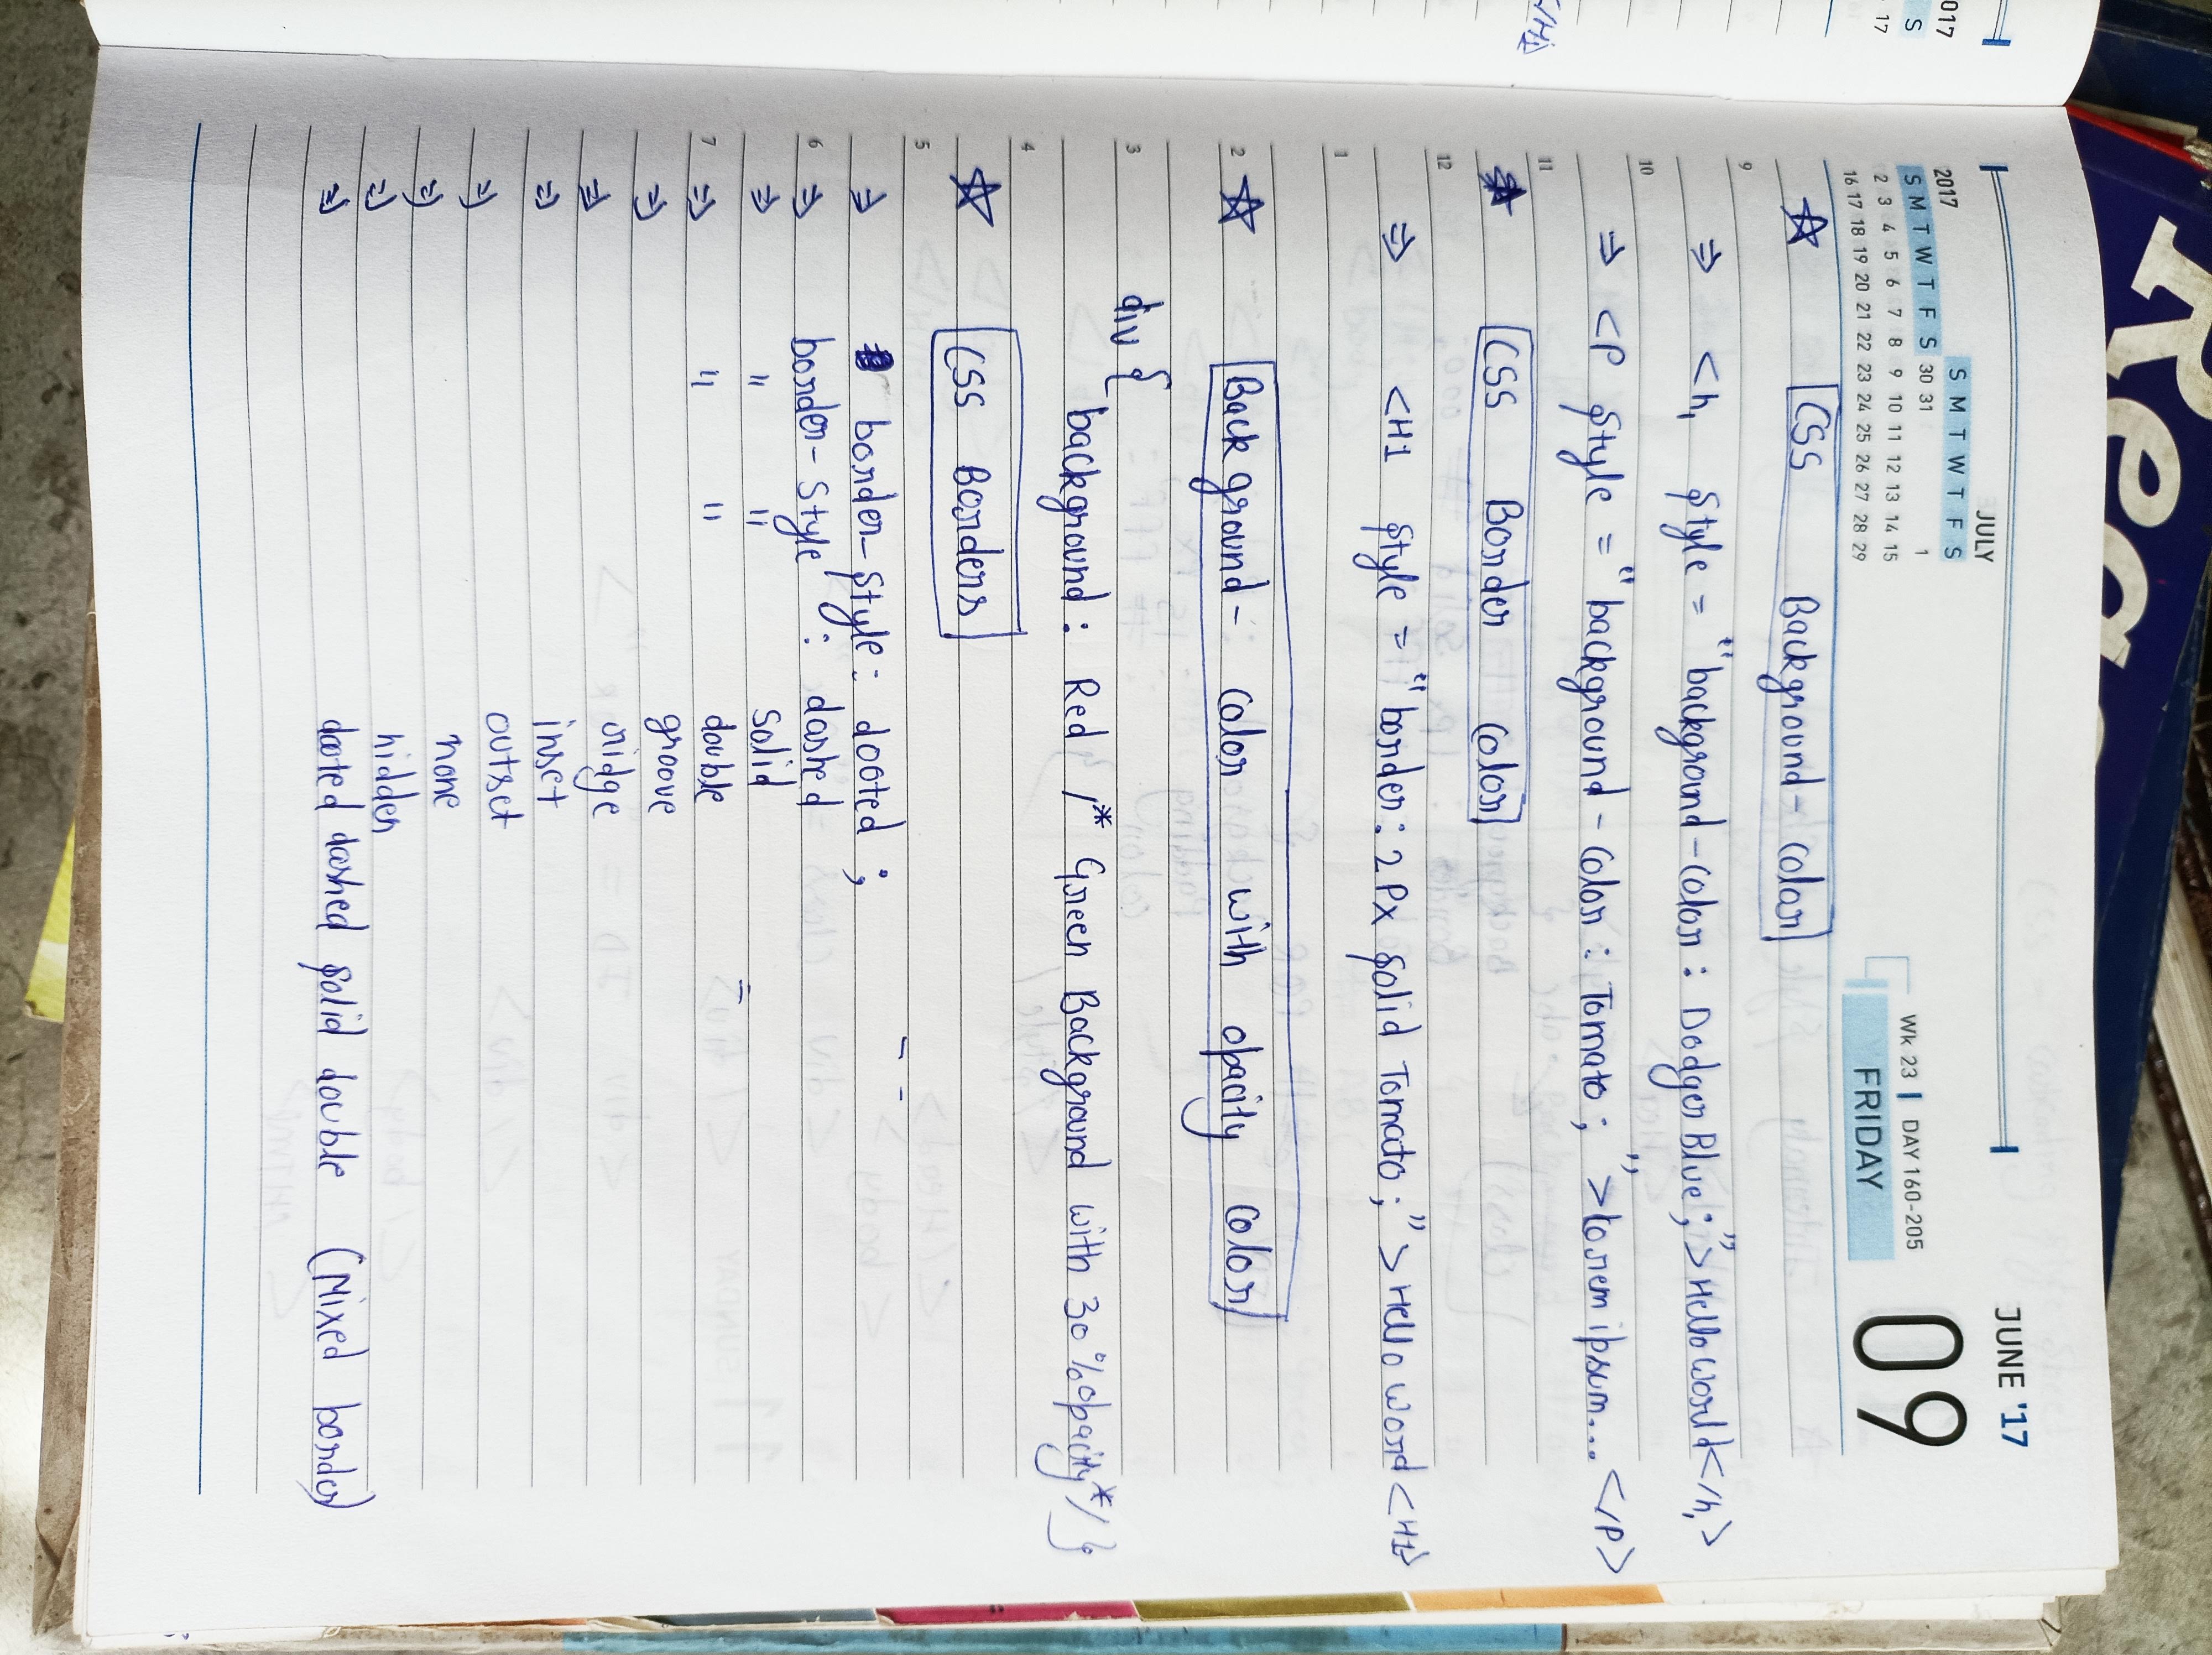 Rea
JUNE '17
09
JULY
2017
S M T W T F S
S M T W T F S 30 31 1
2 3 4 5 6 7 8 9 10 11 12 13 14 15
16 17 18 19 20 21 22 23 24 25 26 27 28 29
Wk 23 | DAY 160-205
FRIDAY
017
S
17
</H1
CSS Background-Color
9
⇒ <h1 style = "background-color: DodgerBlue;">Hello World</h1>
10
⇒ <P style = "background-color: Tomato; ">Lorem ipsum... </P>
11
CSS Border Color
12
⇒ <H1 style = "border: 2 Px solid Tomato;">Hello Word <H1>
1
2 Background- color with opacity Color
3 div {
background: Red /* Green Background with 30%opacity*/ }
4
CSS Borders
5
⇒ border-style: dooted ; - -
6 ⇒ border-Style : dashed
⇒ " " solid
7 ⇒ " " double =
⇒ groove
⇒ ridge
⇒ inset
⇒ outset
⇒ none
⇒ hidden
⇒ dooted dashed solid double (Mixed border)